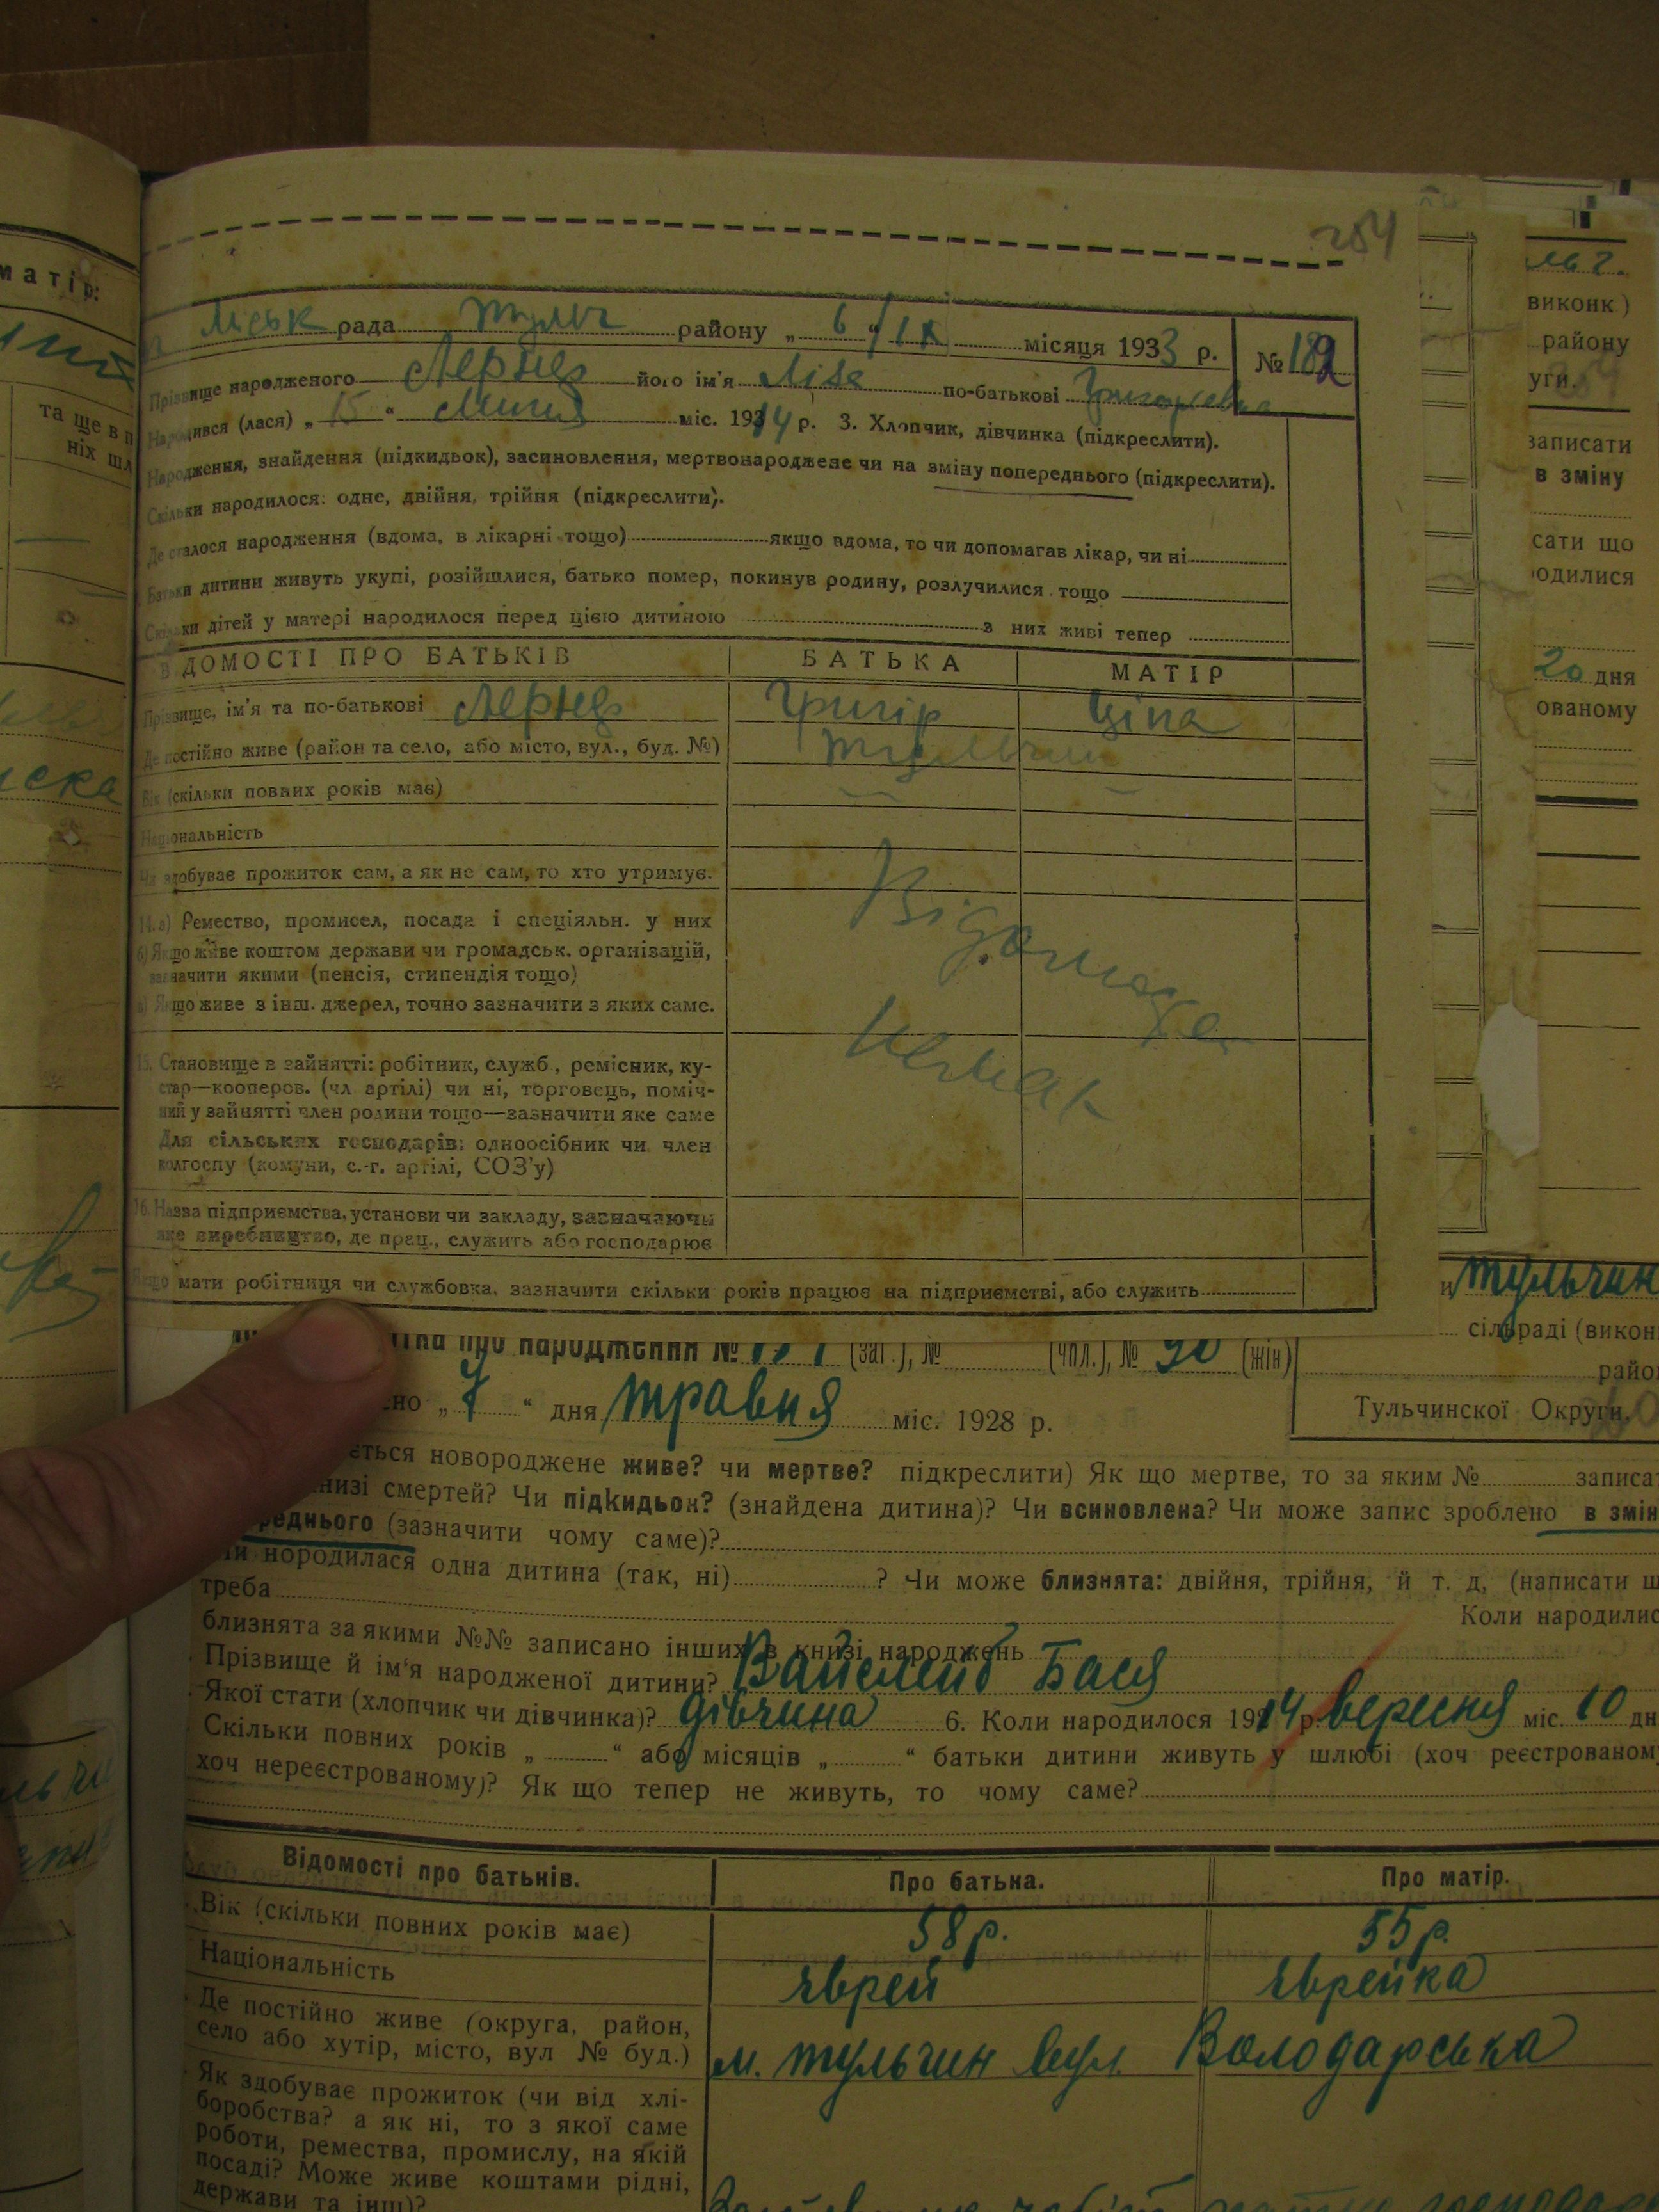 254
Міськ рада Тульч району „ 6 “ / IX місяця 1933 р. № 182
Прізвище народженого Лернер його ім'я Ліза по-батькові Григоревна
Народився (лася) „ 15 “ міс. 1914 р. 3. Хлопчик, дівчинка (підкреслити).
Народження, знайдення (підкидьок), засиновлення, мертвонароджене чи на зміну попереднього (підкреслити).
Скільки народилося: одне, двійня, трійня (підкреслити).
Де сталося народження (вдома, в лікарні тощо) якщо вдома, то чи допомагав лікар, чи ні
Батьки дитини живуть укупі, розійшлися, батько помер, покинув родину, розлучилися тощо
Скільки дітей у матері народилося перед цією дитиною з них живі тепер
ВІДОМОСТІ ПРО БАТЬКІВ БАТЬКА МАТІР
Прізвище, ім'я та по-батькові Лернер Григір Ціпа
Де постійно живе (район та село, або місто, вул., буд. №) Тульчин
Вік (скільки повних років має)
Національність
Чи здобуває прожиток сам, а як не сам, то хто утримує.
14. а) Ремество, промисел, посада і спеціяльн. у них
б) Якщо живе коштом держави чи громадськ. організацій,
зазначити якими (пенсія, стипендія тощо)
в) Якщо живе з інш. джерел, точно зазначити з яких саме.
Відомостей
немає
15. Становище в зайнятті: робітник, служб., ремісник, ку-
стар—кооперов. (чл. артілі) чи ні, торговець, поміч-
ний у зайнятті член родини тощо—зазначити яке саме
Для сільських господарів: одноосібник чи член
колгоспу (комуни, с.-г. артілі, СОЗ'у)
16. Назва підприємства, установи чи закладу, зазначаючи
яке виребництво, де прац., служить або господарює
Якщо мати робітниця чи службовка, зазначити скільки років працює на підприємстві, або служить
про народження № (заг.), № (чол.), № 90 (жін)
„ 7 “ дня травня міс. 1928 р.
Тульчин
сільраді (викон
райо
Тульчинскої Округи.
ється новороджене живе? чи мертве? підкреслити) Як що мертве, то за яким № записа
книзі смертей? Чи підкидьок? (знайдена дитина)? Чи всиновлена? Чи може запис зроблено в змін
переднього (зазначити чому саме)?
Чи нородилася одна дитина (так, ні) ? Чи може близнята: двійня, трійня, й т. д. (написати щ
треба Коли народилис
близнята за якими №№ записано інших в книзі народжень
Прізвище й ім'я народженої дитини? Бася
Якої стати (хлопчик чи дівчинка)? дівчина 6. Коли народилося 1914 р. вересня міс. 10 дн
Скільки повних років „ “ або місяців „ “ батьки дитини живуть у шлюбі (хоч реєстрованом
хоч нереєстрованому)? Як що тепер не живуть, то чому саме?
Відомості про батьків. Про батька. Про матір.
Вік (скільки повних років має) 58 р. 55 р.
Національність єврей єврейка
Де постійно живе (округа, район,
село або хутір, місто, вул № буд.) м. Тульчин вул. Володарська
Як здобуває прожиток (чи від хлі-
боробства? а як ні, то з якої саме
роботи, ремества, промислу, на якій
посаді? Може живе коштами рідні,
держави та інш)?
матір:
та ще в п
ніх шл
виконк)
району
уги.
записати
в зміну
сати що
одилися
20 дня
ованому